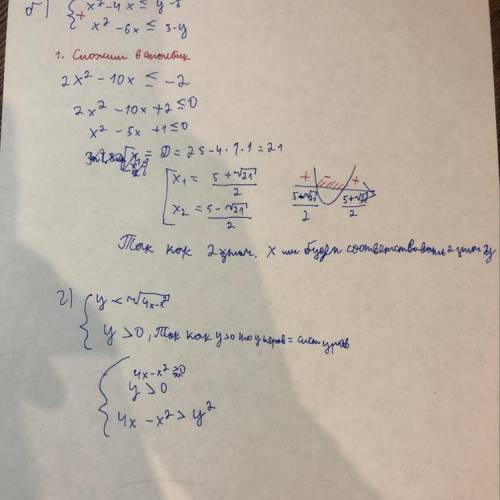 б) { x² - 4x ≤ y - 5
+ x² - 6x ≤ 3 - y
1. Сложим в столбик
2x² - 10x ≤ -2
2x² - 10x + 2 ≤ 0
x² - 5x + 1 ≤ 0
D = 25 - 4 · 1 · 1 = 21
[ x₁ = (5 + √21)/2
x₂ = (5 - √21)/2
+ - +
(5 + √21)/2 (5 + √21)/2
Так как 2 знач. x им будет соответствовать 2 знач y
г) { y < √(4x - x²)
y > 0, Так как y > 0 то = сист урав
{ 4x - x² ≥ 0
y > 0
4x - x² > y²